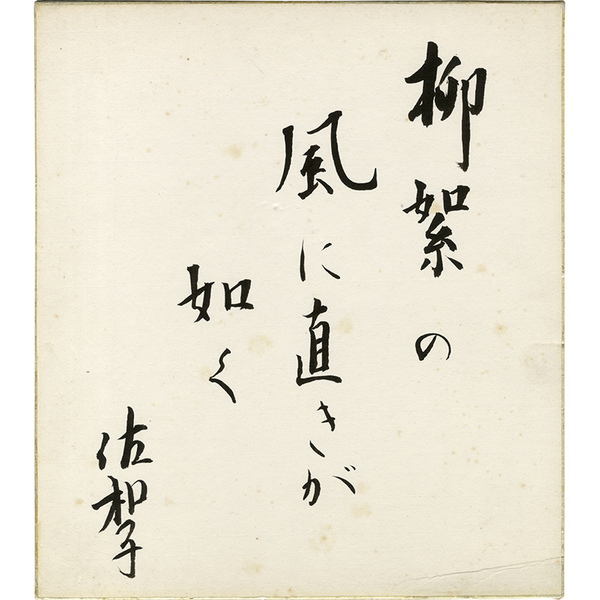 柳絮の
風に直きが
如く
佐和子